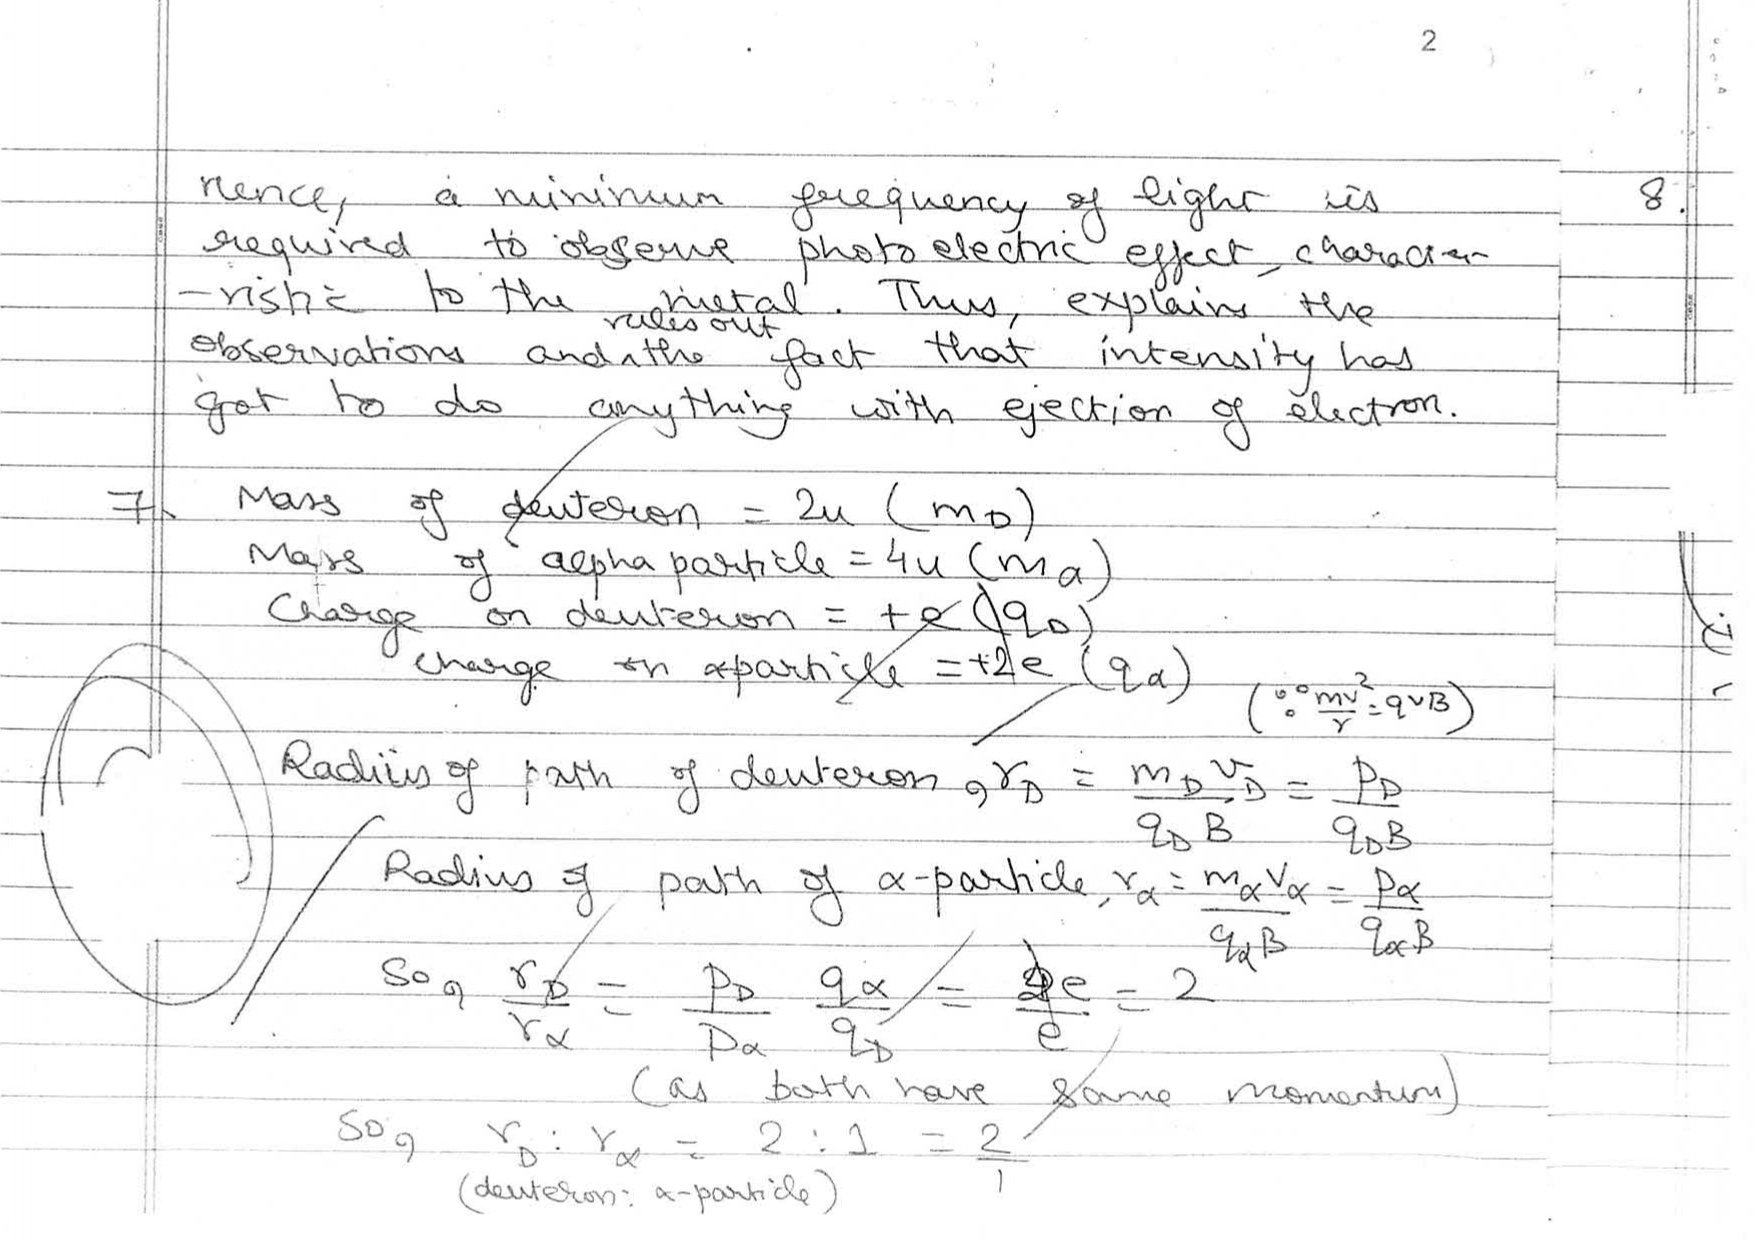 2
hence, a minimum frequency of light is
required to observe photoelectric effect, character-
-ristic to the metal. Thus, explains the
observations and rules out the fact that intensity has
got to do anything with ejection of electron.
8.
7. Mass of deuteron = 2u (mD)
Mass of alpha particle = 4u (mα)
Charge on deuteron = +e (qD)
Charge on αparticle = +2e (qα)
(∵ mv²/r = qvB)
Radius of path of deuteron, rD = mD vD / qD B = pD / qD B
Radius of path of α-particle, rα = mα vα / qα B = pα / qα B
So, rD / rα = pD / pα qα / qD = 2e / e = 2
(as both have same momentum)
So, rD : rα = 2 : 1 = 2/1
(deuteron: α-particle)